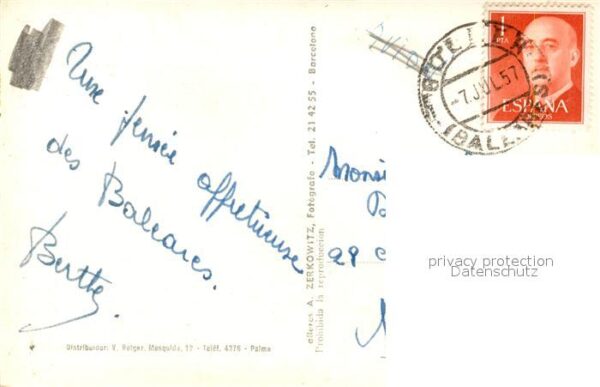 Une pensée affectueuse
des Baleares.
Berthe
Distribuidor: V. Rotger, Mosquida, 12 - Teléf. 4376 - Palma
A. ZERKOWITZ, Fotógrafo - Tel. 21 42 55 - Barcelona
Prohibida la reproducción
avion
-7.JUL.57
(BALEARES)
1
PTA
ESPAÑA
CORREOS
Monsi
28
privacy protection
Datenschutz